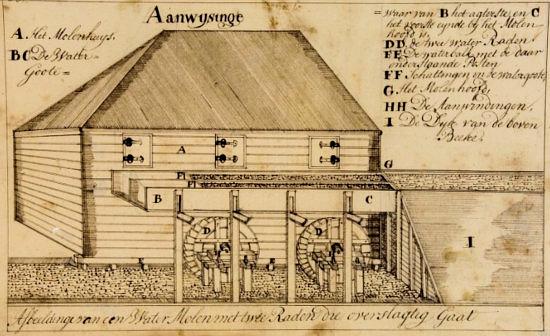 Aanwysinge
A. Het Molenhuys,
BC De Water
Goote =
= waar van B het agterste, en C
het voorste eynde by het Molen
hoofd is.
DD de twee water Raden
EE De waterbalk met de daar
onderstaande Posten
FF Schuttingen, en de waterposte,
G Het Molenhoofd,
HH De Aanwindingen,
I De Dyk van de boven
Beeke.
A
G
F
F
B
C
D
D
H
H
I
E
E
E
Afbeeldinge van een Water Molen met twee Raden die overslagtig Gaat